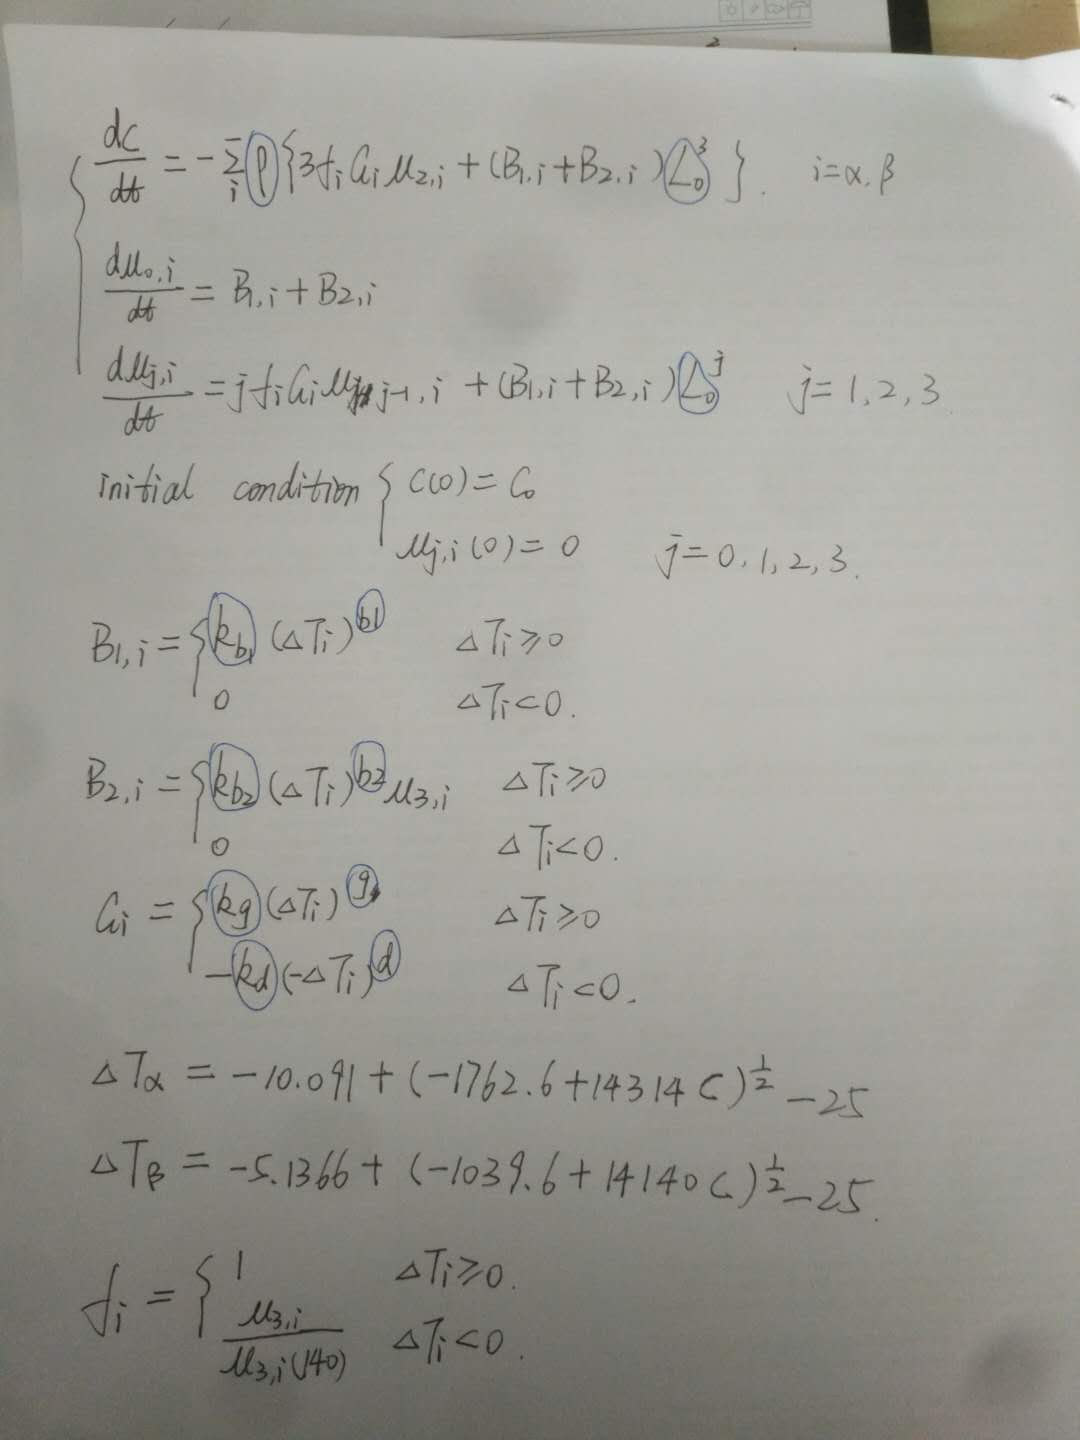 dC/dt = -Σ_i ρ{3f_i G_i μ_{2,i} + (B_{1,i}+B_{2,i})L_0^3}. i=α,β
dμ_{0,i}/dt = B_{1,i}+B_{2,i}
dμ_{j,i}/dt = j f_i G_i μ_{j-1,i} + (B_{1,i}+B_{2,i})L_0^j j=1,2,3
initial condition { C(0)=C_0
μ_{j,i}(0)=0 j=0,1,2,3.
B_{1,i} = { k_{b1}(ΔT_i)^{b1} ΔT_i≥0
0 ΔT_i<0.
B_{2,i} = { k_{b2}(ΔT_i)^{b2} μ_{3,i} ΔT_i≥0
0 ΔT_i<0.
G_i = { k_g(ΔT_i)^g ΔT_i≥0
-k_d(-ΔT_i)^d ΔT_i<0.
ΔT_α = -10.091+(-1762.6+14314C)^{1/2}-25
ΔT_β = -5.1366+(-1039.6+14140C)^{1/2}-25.
f_i = { 1 ΔT_i≥0.
μ_{3,i}/μ_{3,i}(140) ΔT_i<0.